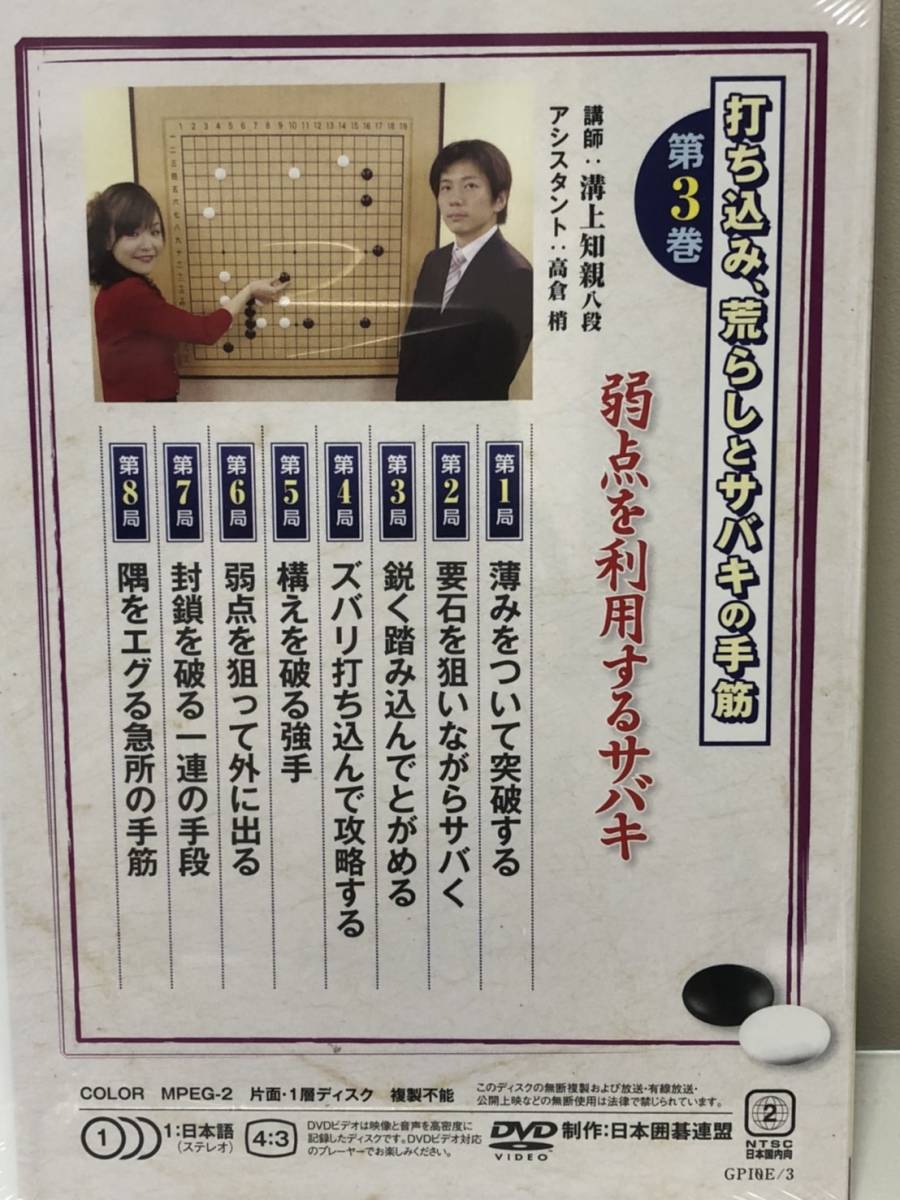 打ち込み、荒らしとサバキの手筋
第3巻
講師：溝上知親八段
アシスタント：高倉 梢
弱点を利用するサバキ
第1局 薄みをついて突破する
第2局 要石を狙いながらサバく
第3局 鋭く踏み込んでとがめる
第4局 ズバリ打ち込んで攻略する
第5局 構えを破る強手
第6局 弱点を狙って外に出る
第7局 封鎖を破る一連の手段
第8局 隅をエグる急所の手筋
1 2 3 4 5 6 7 8 9 10 11 12 13 14 15 16 17 18 19
COLOR MPEG-2 片面・1層ディスク 複製不能
このディスクの無断複製および放送・有線放送・
公開上映などの無断使用は法律で禁じられています。
1
1：日本語
（ステレオ）
4:3
DVDビデオは映像と音声を高密度に
記録したディスクです。DVDビデオ対応
のプレーヤーでお楽しみください。
DVD
VIDEO
制作：日本囲碁連盟
2
NTSC
日本国内向
GPI0E/3